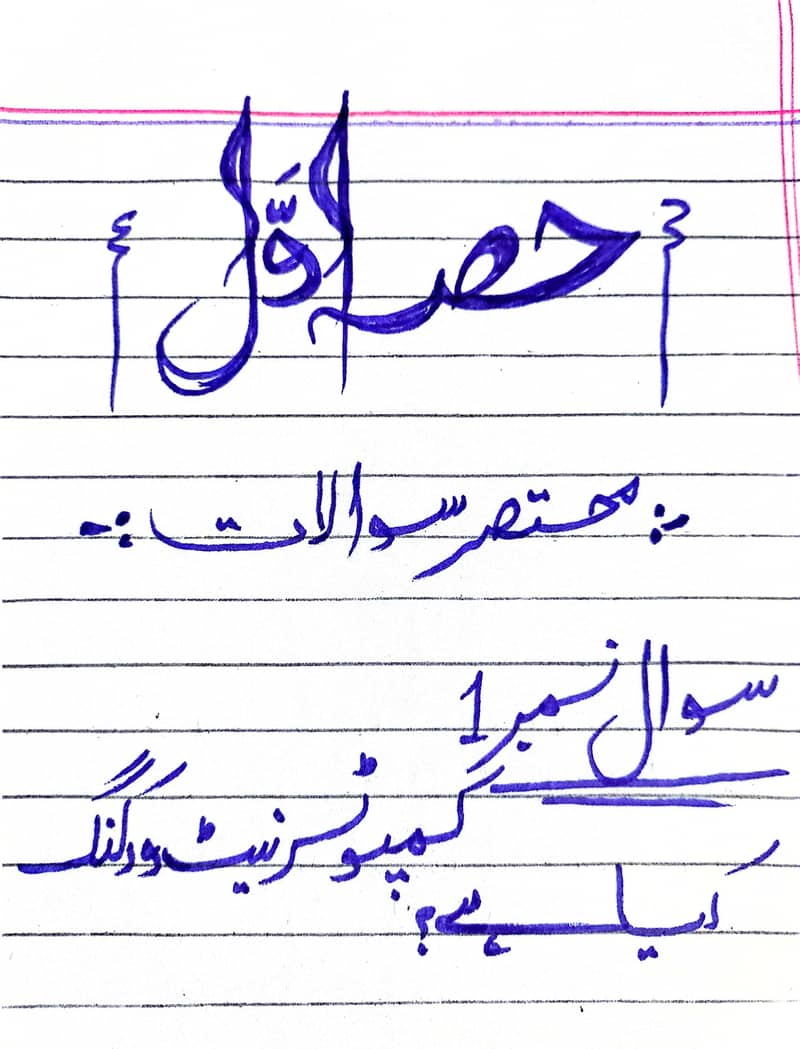 { حصہ اوّل }
:۔ مختصر سوالات :۔
سوال نمبر 1
کمپیوٹر نیٹ ورکنگ
کیا ہے؟